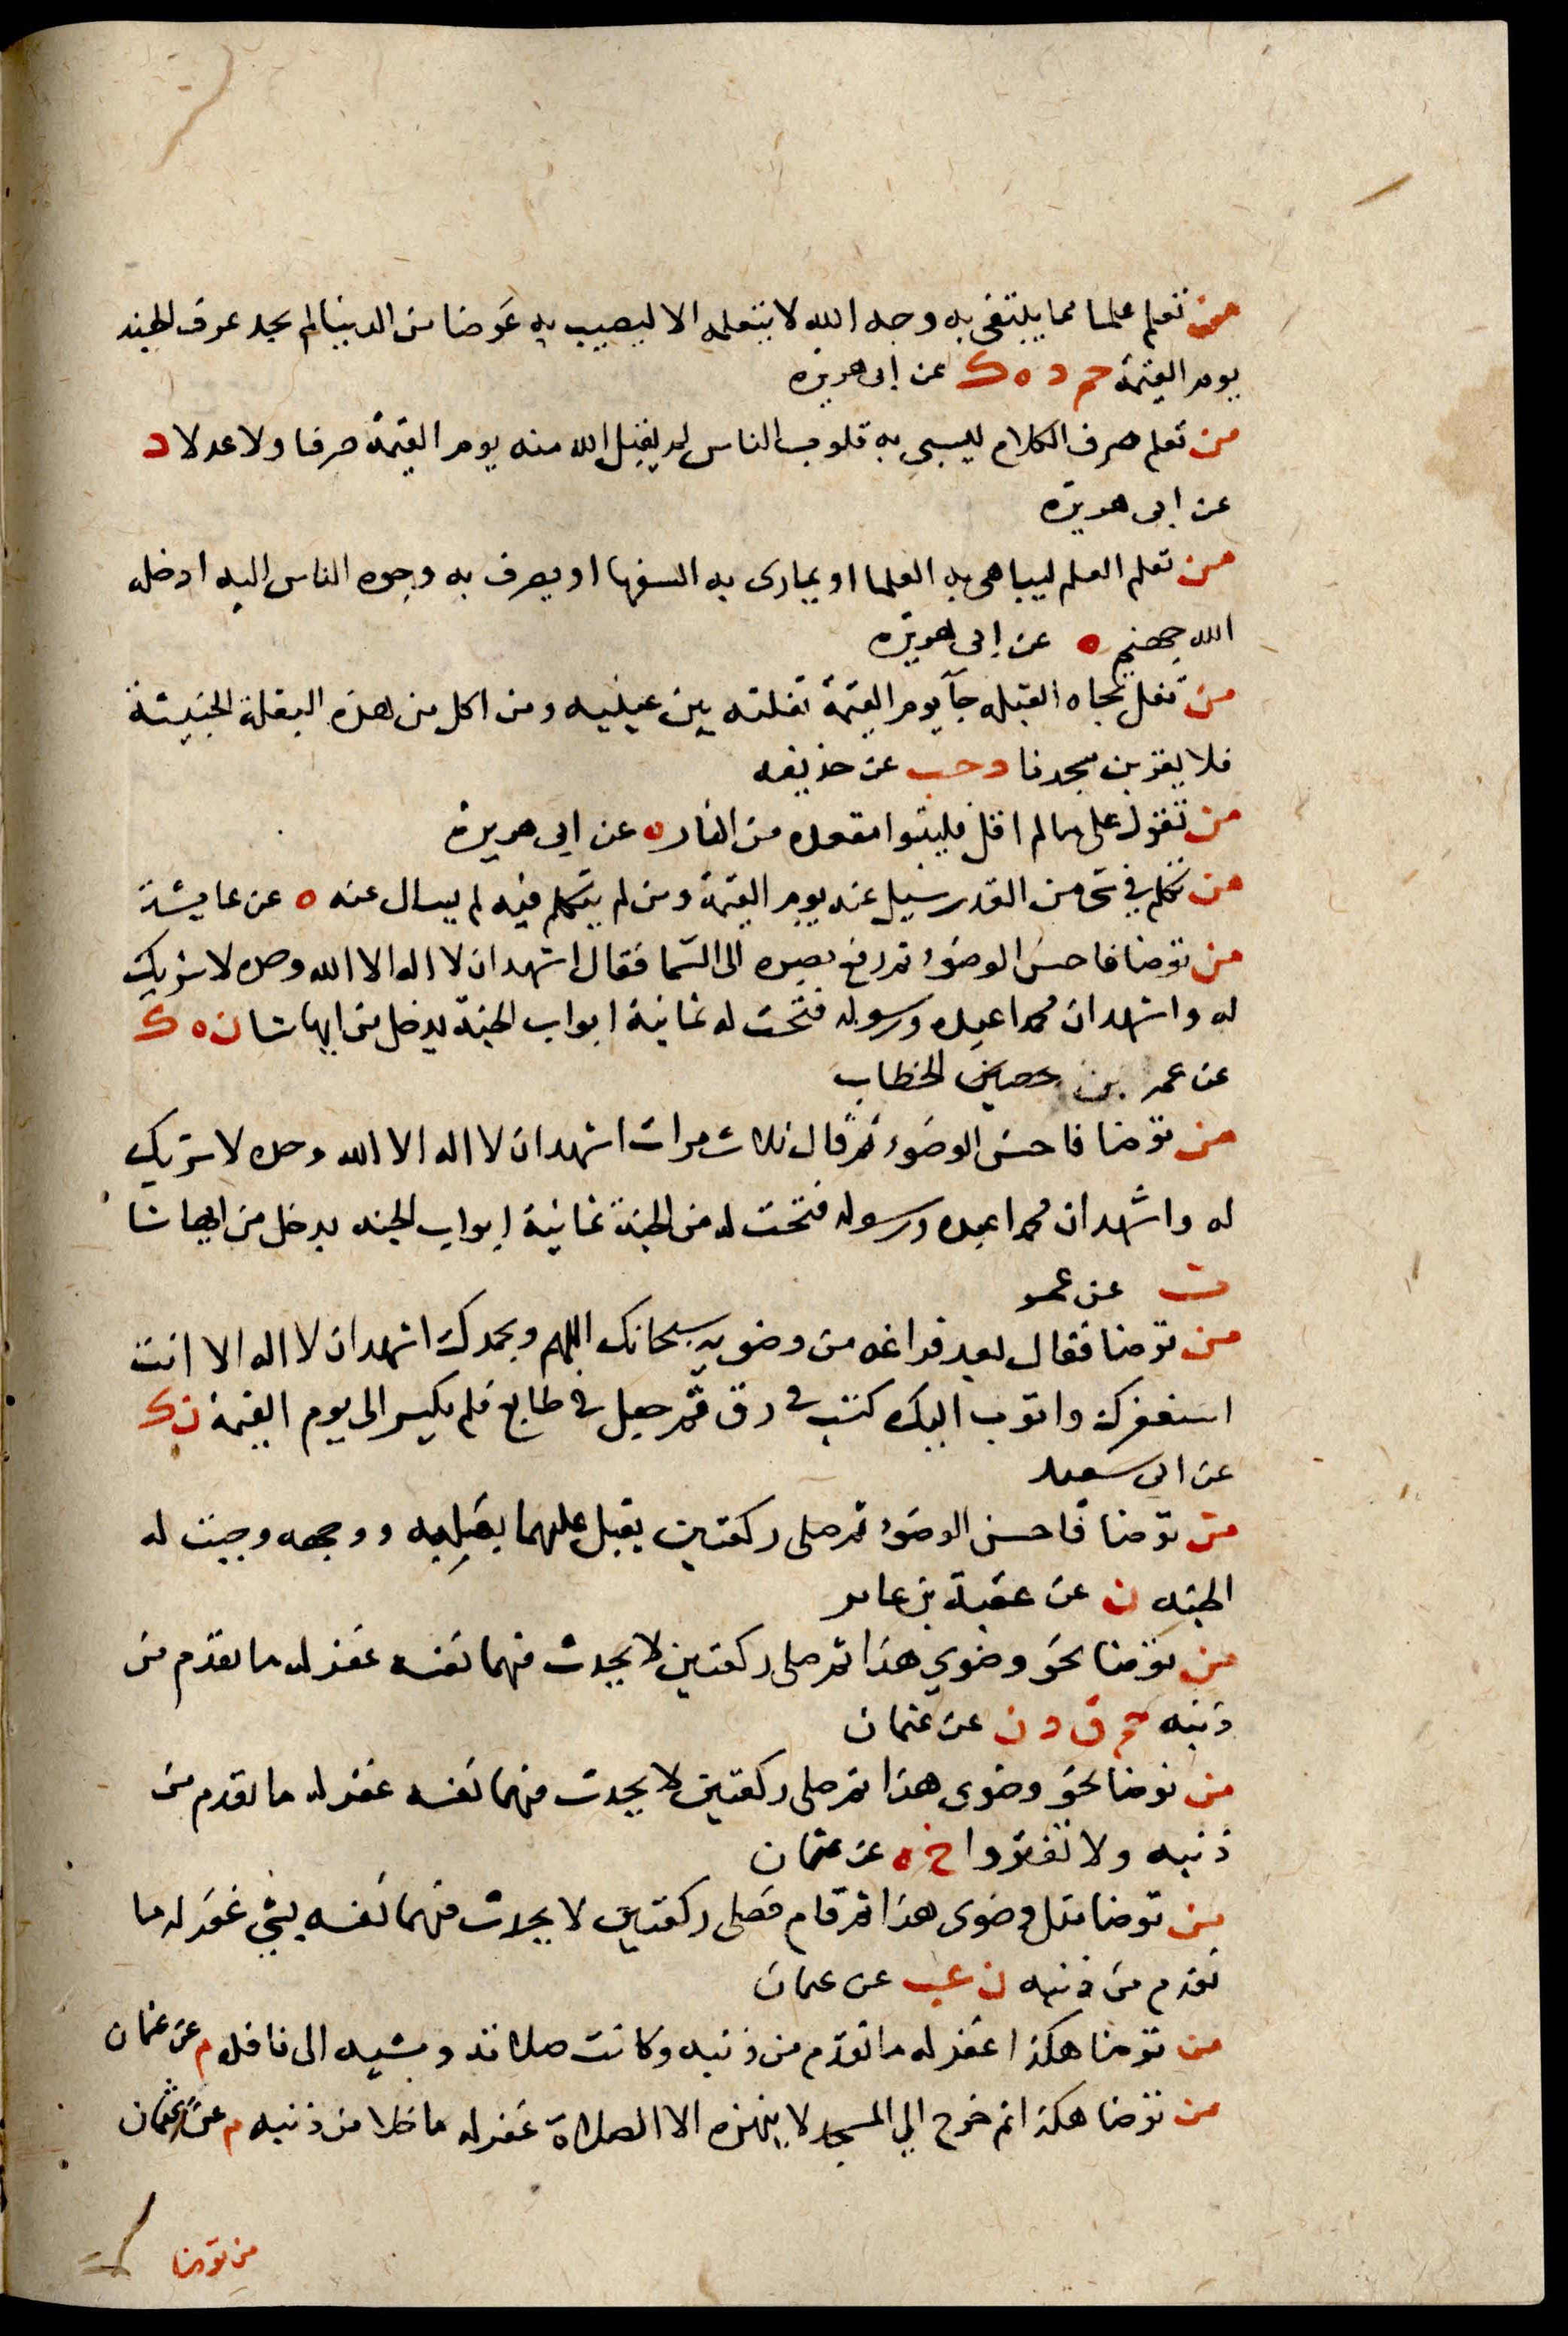 من تعلم علما مما يبتغى به وجه الله لا يتعلمه الا ليصيب به عَرضا من الدنيا لم يجد عرف الجنه
يوم القيمة حم د ه ك عن ابى هريره
من تعلم صرف الكلام ليسبي به قلوب الناس لم يقبل الله منه يوم القيمة صرفا ولا عدلا د
عن ابى هريرة
من تعلم العلم ليباهى به العلما او يمارى به السفها او يصرف به وجوه الناس اليه ادخله
الله جهنم ه عن ابى هريره
من تفل تجاه القبله جآ يوم القيمة تفلته بين عينيه ومن اكل من هذه البقلة الخبيثة
فلا يقربن مسجدنا د حب عن حذيفه
من تقول على ما لم اقل فليتبوا مقعده من النار ه عن ابى هريرة
من تكلم في شى من القدر سيل عنه يوم القيمة ومن لم يتكلم فيه لم يسال عنه ه عن عايشة
من توضا فاحسن الوضوء ثم رفع بصره الى السما فقال اشهد ان لا اله الا الله وحده لا شريك
له واشهد ان محمدا عبده ورسوله فتحت له ثمانية ابواب الجنة يدخل من ايها شا ن ه ك
عن عمر بن حصين الخطاب
من توضا فاحسن الوضوء ثم قال ثلاث مرات اشهد ان لا اله الا الله وحده لا شريك
له واشهد ان محمدا عبده ورسوله فتحت له من الجنة ثمانية ابواب الجنه يدخل من ايها شا
ت عن عمر
من توضا فقال بعد فراغه من وضويه سبحانك اللهم وبحمدك اشهد ان لا اله الا انت
استغفرك واتوب اليك كتب في رق ثم جعل في طابع فلم يكسر الى يوم القيمة ن ك
عن ابى سعيد
من توضا فاحسن الوضوء ثم صلى ركعتين يقبل عليهما بقلبه ووجهه وجبت له
الجنه ن عن عقبة بن عامر
من توضا نحو وضوي هذا ثم صلى ركعتين لا يحدث فيهما نفسه غفر له ما تقدم من
ذنبه حم ق د ن عن عثمان
من توضا نحو وضوى هذا ثم صلى ركعتين لا يحدث فيهما نفسه غفر له ما تقدم من
ذنبه ولا تغتروا خ ه عن عثمان
من توضا مثل وضوى هذا ثم قام فصلى ركعتين لا يحدث فيهما نفسه بشي غفر له ما
تقدم من ذنبه ن عب عن عثمان
من توضا هكذا غفر له ما تقدم من ذنبه وكانت صلاته ومشيه الى نافله م عن عثمان
من توضا هكذا ثم خرج الي المسجد لا ينهزه الا الصلاة غفر له ما خلا من ذنبه م عن عثمان
من توضا